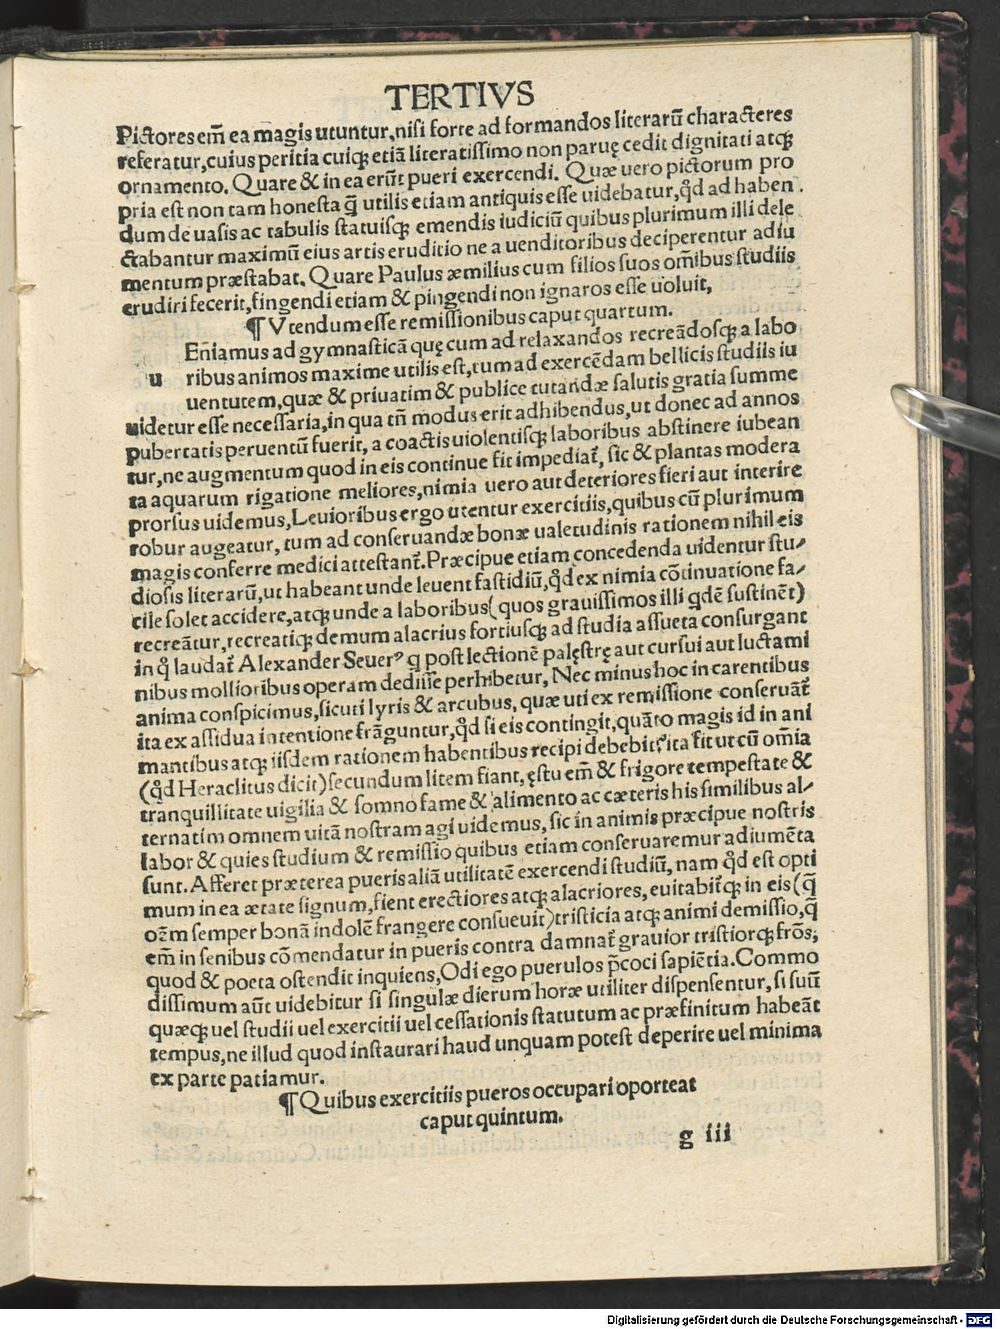 TERTIVS
Pictores em̃ ea magis utuntur,nisi forte ad formandos literarũ characteres
referatur,cuius peritia cuiq; etiã literatissimo non paruę cedit dignitati atq;
ornamento. Quare & in ea erũt pueri exercendi. Quæ uero pictorum pro
pria est non tam honesta q̃ utilis etiam antiquis esse uidebatur,qd̉ ad haben
dum de uasis ac tabulis statuisq; emendis iudiciũ quibus plurimum illi dele
ctabantur maximũ eius artis eruditio ne a uenditoribus deciperentur adiu
mentum præstabat. Quare Paulus æmilius cum filios suos om̃ibus studiis
erudiri fecerit,fingendi etiam & pingendi non ignaros esse uoluit,
¶ Vtendum esse remissionibus caput quartum.
Eñiamus ad gymnasticã quę cum ad relaxandos recreãdosq; a labo
u ribus animos maxime utilis est,tum ad exercẽdam bellicis studiis iu
uentutem,quæ & priuatim & publice tutandæ salutis gratia summe
uidetur esse necessaria,in qua tñ modus erit adhibendus,ut donec ad annos
pubertatis peruentũ fuerit, a coactis uiolentisq; laboribus abstinere iubean
tur,ne augmentum quod in eis continue fit impediat᷑, sic & plantas modera
ta aquarum rigatione meliores,nimia uero aut deteriores fieri aut interire
prorsus uidemus,Leuioribus ergo utentur exercitiis,quibus cũ plurimum
robur augeatur, tum ad conseruandæ bonæ ualetudinis rationem nihil eis
magis conferre medici attestant᷑.Præcipue etiam concedenda uidentur stu/
diosis literarũ,ut habeant unde leuent fastidiũ,qd̉ ex nimia cõtinuatione fa/
cile solet accidere,atq; unde a laboribus(quos grauissimos illi qdẽ sustinẽt)
recreãtur,recreatiq; demum alacrius fortiusq; ad studia assueta consurgant
in q̉ laudat᷑ Alexander Seuerꝰ q post lectionẽ palęstrę aut cursui aut luctami
nibus mollioribus operam dedisse perhibetur, Nec minus hoc in carentibus
anima conspicimus,sicuti lyris & arcubus, quæ uti ex remissione conseruãt᷑
ita ex assidua intentione frãguntur,qd̉ si eis contingit,quãto magis id in ani
mantibus atq; iisdem rationem habentibus recipi debebit?ita fit ut cũ om̃ia
(qd̉ Heraclitus dicit)secundum litem fiant,ęstu em̃ & frigore tempestate &
tranquillitate uigilia & somno fame & alimento ac cæteris his similibus al/
ternatim omnem uitã nostram agi uidemus, sic in animis præcipue nostris
labor & quies studium & remissio quibus etiam conseruaremur adiumẽta
sunt. Afferet præterea pueris aliã utilitatẽ exercendi studiũ, nam qd̉ est opti
mum in ea ætate signum,fient erectiores atq; alacriores, euitabit᷑q; in eis(q̃
oẽm semper bonã indolẽ frangere consueuit)tristicia atq; animi demissio,q̃
em̃ in senibus cõmendatur in pueris contra damnat᷑ grauior tristiorq; frõs;
quod & poeta ostendit inquiens,Odi ego puerulos p̃coci sapiẽtia.Commo
dissimum aũt uidebitur si singulæ dierum horæ utiliter dispensentur, si suũ
quæq; uel studii uel exercitii uel cessationis statutum ac præfinitum habeãt
tempus,ne illud quod instaurari haud unquam potest deperire uel minima
ex parte patiamur.
¶ Quibus exercitiis pueros occupari oporteat
caput quintum.
g iii
Digitalisierung gefördert durch die Deutsche Forschungsgemeinschaft - DFG